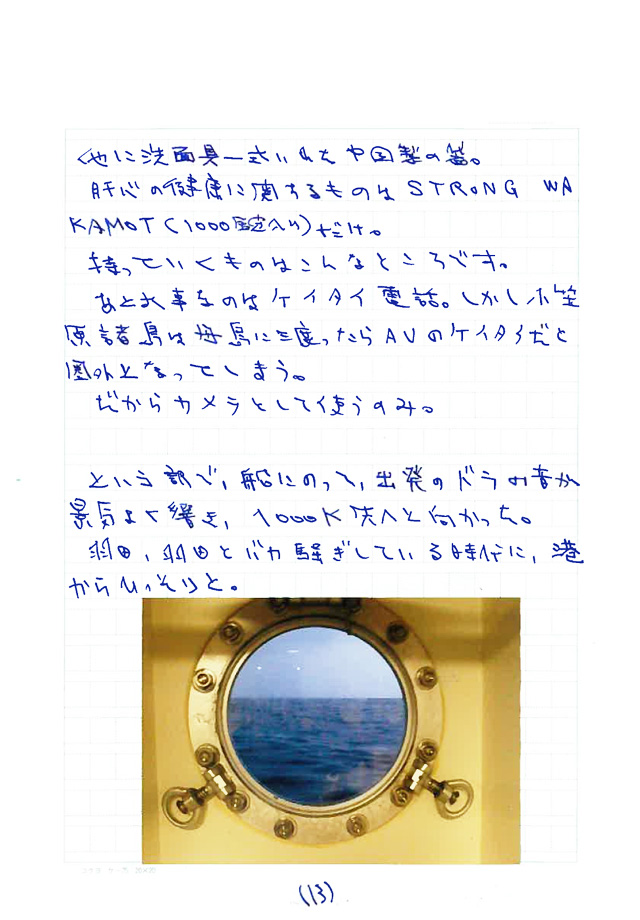 他に洗面具一式いれた中国製の籠。
肝心の健康に関するものはSTRONG WA
KAMOT(1000錠入り)だけ。
持っていくものはこんなところです。
あと大事なのはケイタイ電話。しかし小笠
原諸島は母島に渡ったらAUのケイタイだと
圏外となってしまう。
だからカメラとして使うのみ。
という訳で、船にのって、出発のドラの音が
景気よく響き、1000K彼方へと向かった。
羽田、羽田とバカ騒ぎしている時代に、港
からひっそりと。
(13)